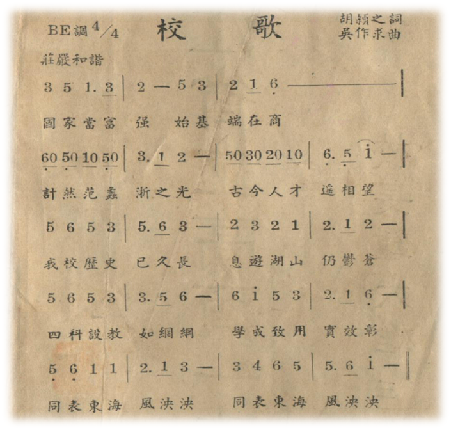 BE調 4/4 校 歌 胡 之 詞
吳作求曲
莊嚴和諧
3 5 1. 3 | 2 — 5 3 | 2 1 6 ———
國家當富 强 始基 端在商
60 50 10 50 | 3. 1 2 — | 50 30 20 10 | 6. 5 i —
計然范蠡 浙之光 古今人才 遥相望
5 6 5 3 | 5. 6 3 — | 2 3 2 1 | 2. 1 2 —
我校歷史 已久長 息遊湖山 仍鬱蒼
5 6 5 3 | 3. 5 6 — | 6 i 5 3 | 2. 1 6 —
四科設教 如網網 學成致用 實效彰
5 6 1 1 | 2. 1 3 — | 3 4 6 5 | 5. 6 i —
同表東海 風泱泱 同表東海 風泱泱